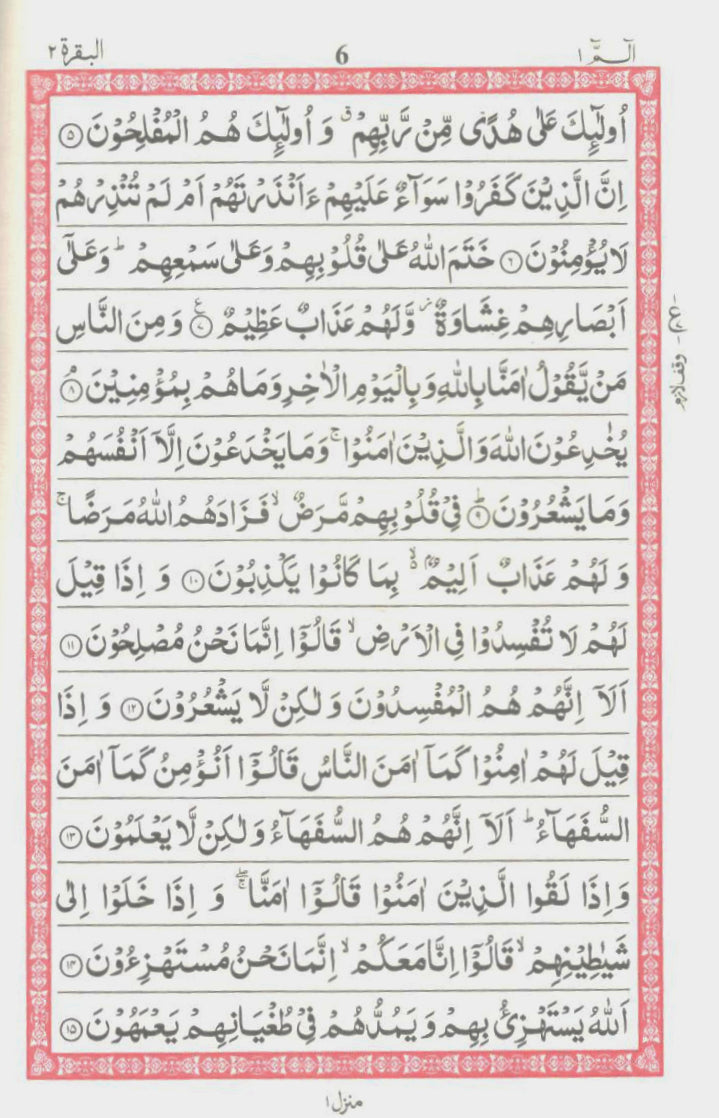 الٓمّٓ ١ 6 البقرة ٢
اُولٰٓئِكَ عَلٰی هُدًی مِّنْ رَّبِّهِمْ ۗ وَ اُولٰٓئِكَ هُمُ الْمُفْلِحُوْنَ ۝۵
اِنَّ الَّذِیْنَ كَفَرُوْا سَوَآءٌ عَلَیْهِمْ ءَاَنْذَرْتَهُمْ اَمْ لَمْ تُنْذِرْهُمْ
لَا یُؤْمِنُوْنَ ۝۶ خَتَمَ اللّٰهُ عَلٰی قُلُوْبِهِمْ وَعَلٰی سَمْعِهِمْ ؕ وَعَلٰۤی
اَبْصَارِهِمْ غِشَاوَةٌ ؗ وَّلَهُمْ عَذَابٌ عَظِیْمٌ ۝۷ ع وَمِنَ النَّاسِ
مَنْ یَّقُوْلُ اٰمَنَّا بِاللّٰهِ وَبِالْیَوْمِ الْاٰخِرِ وَمَا هُمْ بِمُؤْمِنِیْنَ ۝۸ۘ
یُخٰدِعُوْنَ اللّٰهَ وَالَّذِیْنَ اٰمَنُوْا ۚ وَمَا یَخْدَعُوْنَ اِلَّاۤ اَنْفُسَهُمْ
وَمَا یَشْعُرُوْنَ ۝۹ؕ فِیْ قُلُوْبِهِمْ مَّرَضٌ ۙ فَزَادَهُمُ اللّٰهُ مَرَضًا ۚ
وَ لَهُمْ عَذَابٌ اَلِیْمٌۢ ۙ۬ بِمَا كَانُوْا یَكْذِبُوْنَ ۝۱۰ وَ اِذَا قِیْلَ
لَهُمْ لَا تُفْسِدُوْا فِی الْاَرْضِ ۙ قَالُوْۤا اِنَّمَا نَحْنُ مُصْلِحُوْنَ ۝۱۱
اَلَاۤ اِنَّهُمْ هُمُ الْمُفْسِدُوْنَ وَ لٰكِنْ لَّا یَشْعُرُوْنَ ۝۱۲ وَ اِذَا
قِیْلَ لَهُمْ اٰمِنُوْا كَمَاۤ اٰمَنَ النَّاسُ قَالُوْۤا اَنُؤْمِنُ كَمَاۤ اٰمَنَ
السُّفَهَآءُ ؕ اَلَاۤ اِنَّهُمْ هُمُ السُّفَهَآءُ وَ لٰكِنْ لَّا یَعْلَمُوْنَ ۝۱۳
وَاِذَا لَقُوا الَّذِیْنَ اٰمَنُوْا قَالُوْۤا اٰمَنَّا ۖۚ وَ اِذَا خَلَوْا اِلٰی
شَیٰطِیْنِهِمْ ۙ قَالُوْۤا اِنَّا مَعَكُمْ ۙ اِنَّمَا نَحْنُ مُسْتَهْزِءُوْنَ ۝۱۴
اَللّٰهُ یَسْتَهْزِئُ بِهِمْ وَ یَمُدُّهُمْ فِیْ طُغْیَانِهِمْ یَعْمَهُوْنَ ۝۱۵
وقف لازم
منزل ۱